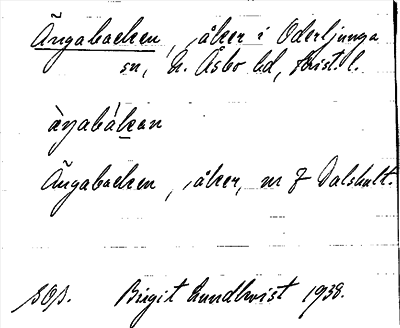 Ängabacken, åker i Oderljunga
sn, N. Åsbo hd, Krist. l.
àŋabákan
Ängabacken, åker, nr 7 Dalshult.
SOS. Birgit Lundkvist 1938.